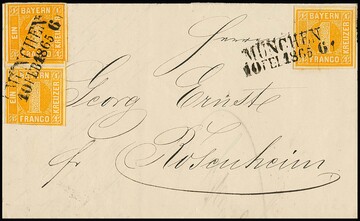 BAYERN
EIN KREUZER
FRANCO
MÜNCHEN
10 FEB 1865 6
BAYERN
EIN KREUZER
FRANCO
BAYERN
KREUZER
FRANCO
MÜNCHEN
10 FEB 1865 6
Herrn
Georg Ernst
fr Rosenheim